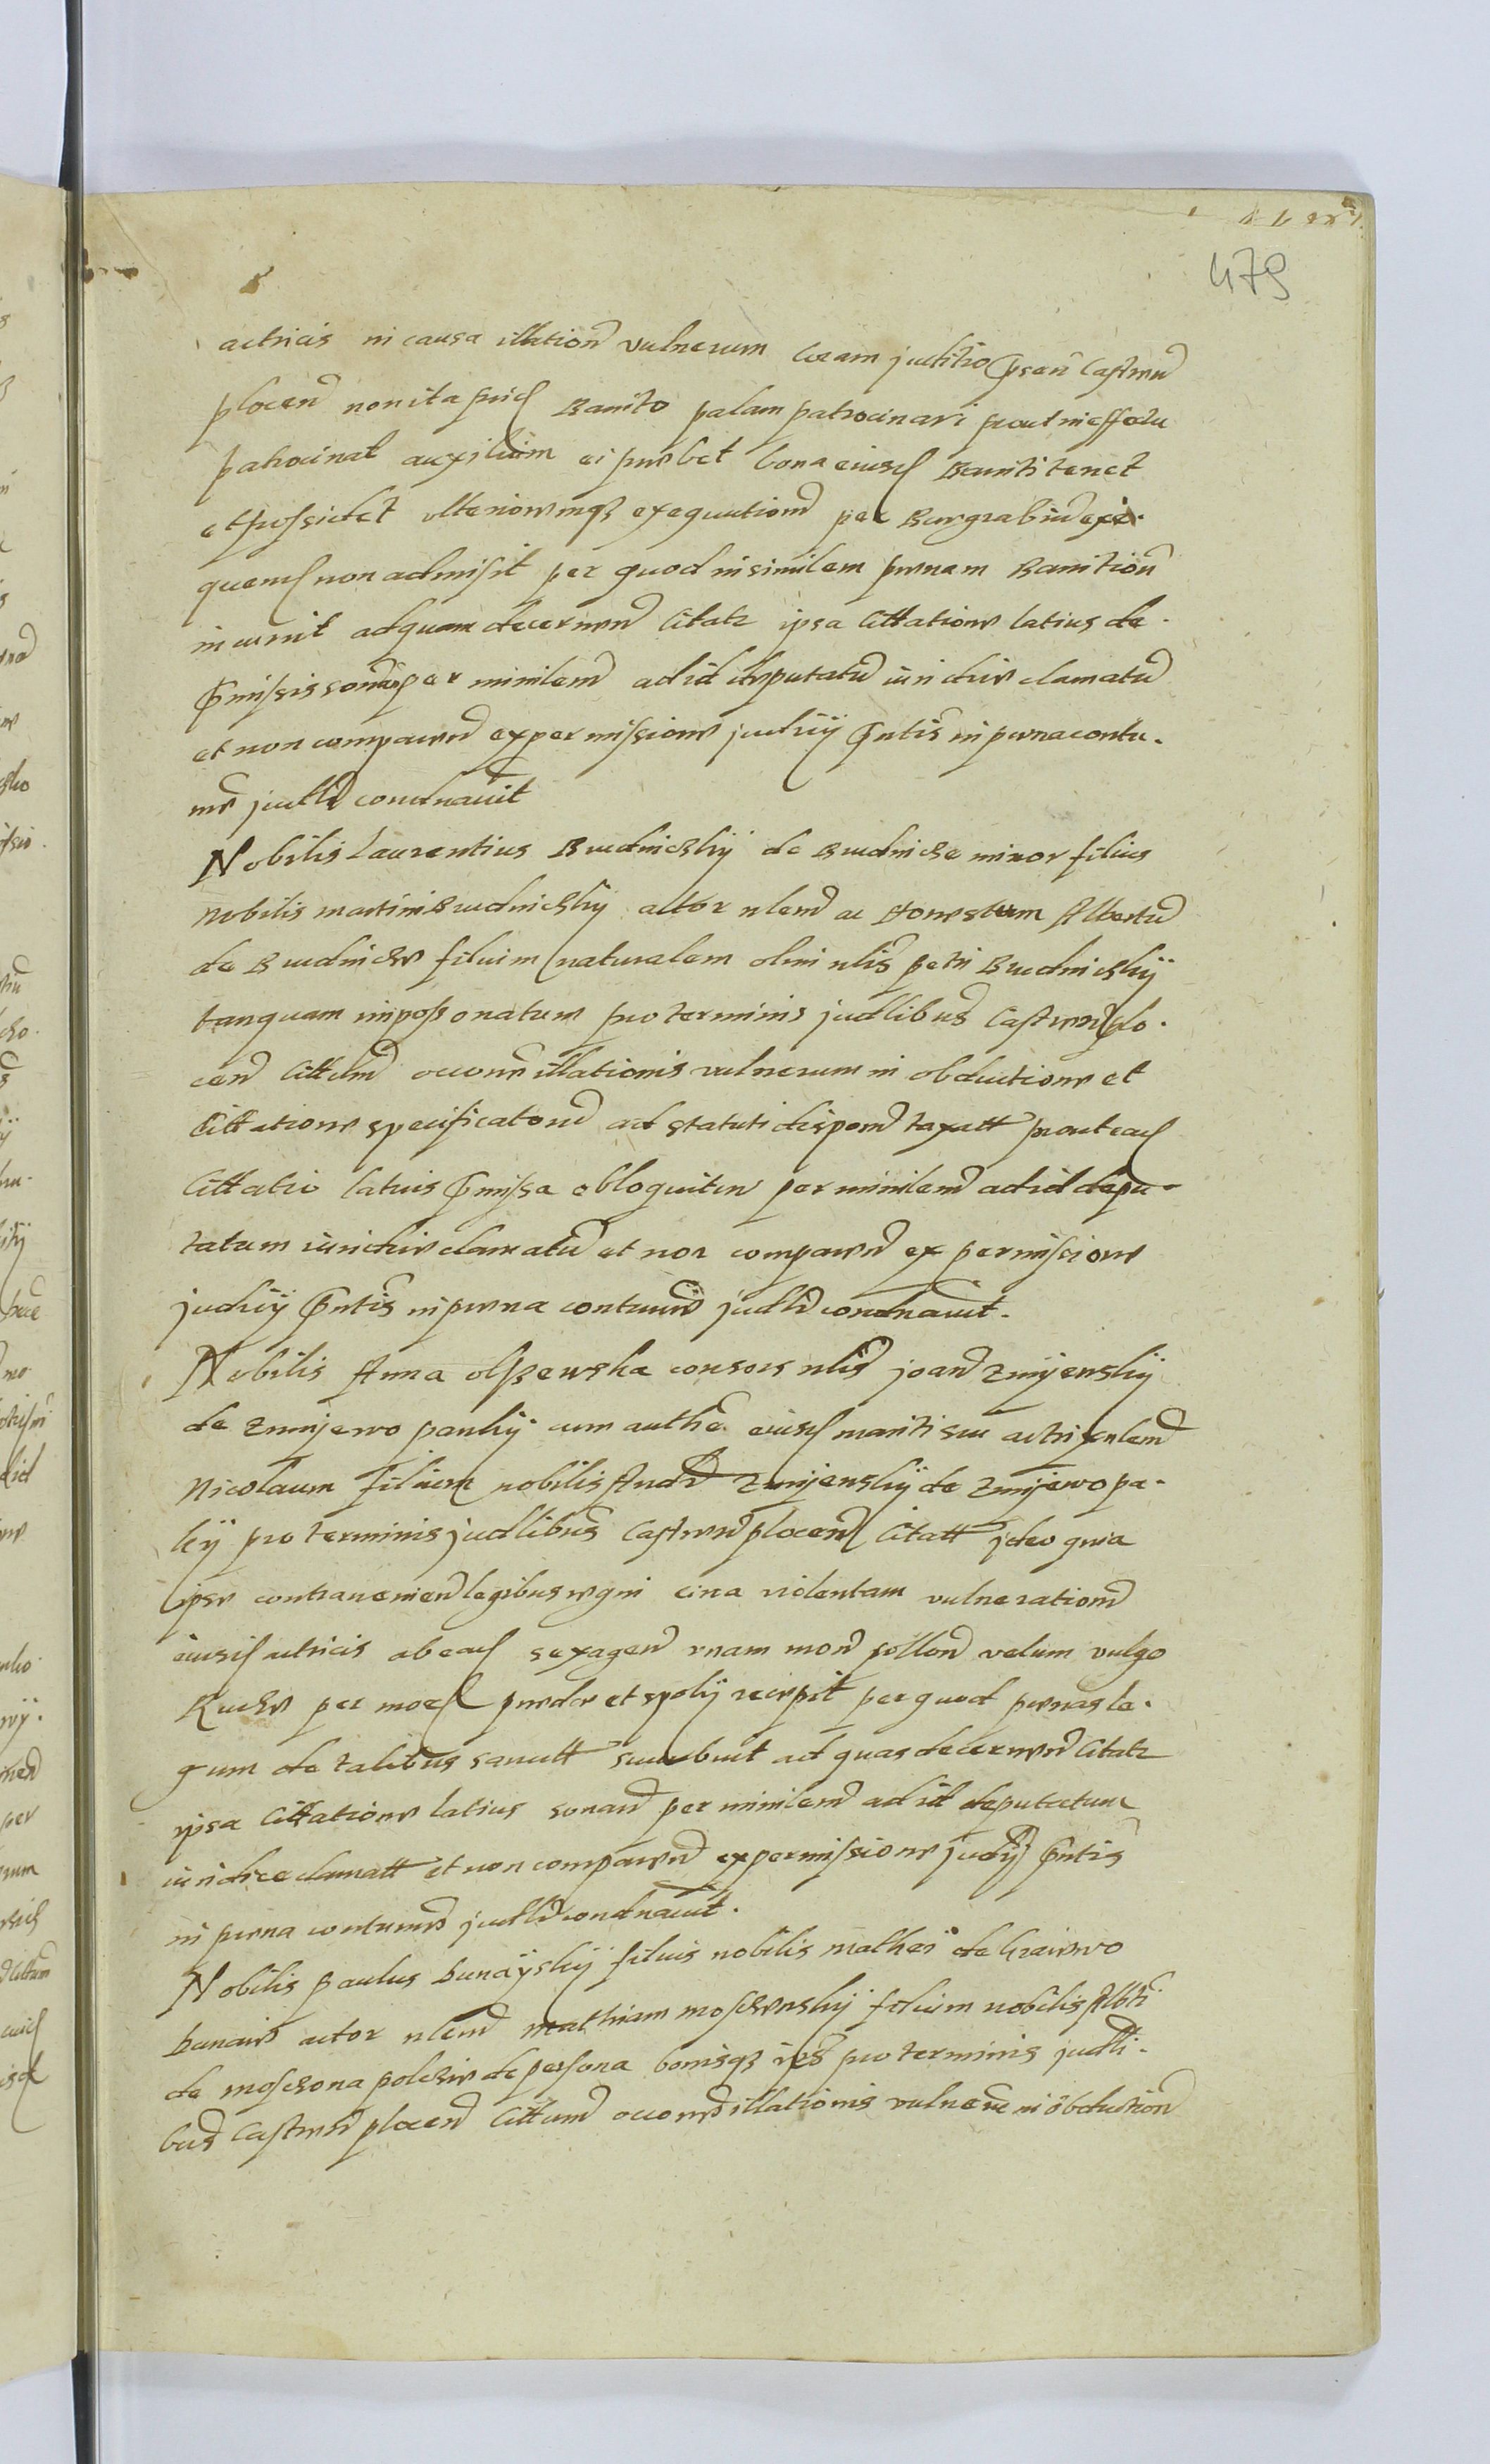 479
actricis in causa illation vulnerum coram juditio pſenti Caſtren
plocen non ita prid Banito palam patrocinari prout in effectu
patrocinat auxilium ei prebet bona eiusd Baniti tenet
et poſsidet ulterioremqȝ exequutionem per Burgrabium exe-
quend non admiſit per quod in similem penam Banition
incurrit ad quam decernend Citatr ipsa Cittatione latius de
pmiſsis sonan per minilem ad id deputatum iuridice clamatum
et non comparen ex permiſsione judicij pntis in pena contu-
me judlr condnavit
Nobilis Laurentius Brudnicskij de Brudnicze minor filius
Nobilis martini Brudnicskij actor nlem ac Honestum Albertum
de Brudnicze filium naturalem olim nlis petri Brudnicskij
tanquam impoſsonatum pro terminis judlibus Caſtren plo-
cen Cittatum occone illationis vulnerum in obductione et
Cittatione specificatorum ad statuti dispon taxatt prout ead
Cittatio latius pmiſsa obloquitur per minilem ad id depu-
tatum iuridice clamatum et non comparen ex permiſsione
judicij pntis in pena contume judlr condnavit.
Nobilis Anna olſzewska consors nlis joan zmijewskij
de zmijewo paukij cum authe eiusd mariti sui actrix nlem
Nicolaum filium nobilis And zmijewskij de zmijewo pa-
kij pro terminis judlibus Caſtren plocen Citatt jdeo quia
ipse contravenien legibus regni circa violentam vulnerationem
eiusd actricis ab ead sexagen vnam mon pollon velum vulgo
Rucze per mod prede et spolij recepit per quod penas le-
gum de talibus sancitt succubuit ad quas decernen Citatr
ipsa Cittatione latius sonan per minilem ad id deputatum
iuridice clamatt et non comparen ex permiſsione judij pntis
in pena contume judlr condnavit.
Nobilis paulus bunaijskij filius nobilis mathei de Graiewo
bunaie actor nlem mathiam moſczenskij filium nobilis Albti
de moſczona polczie de perſona bonisqȝ ipſ pro terminis judli-
bus Caſtren plocen Cittatum occone illationis vulnerum in obduction